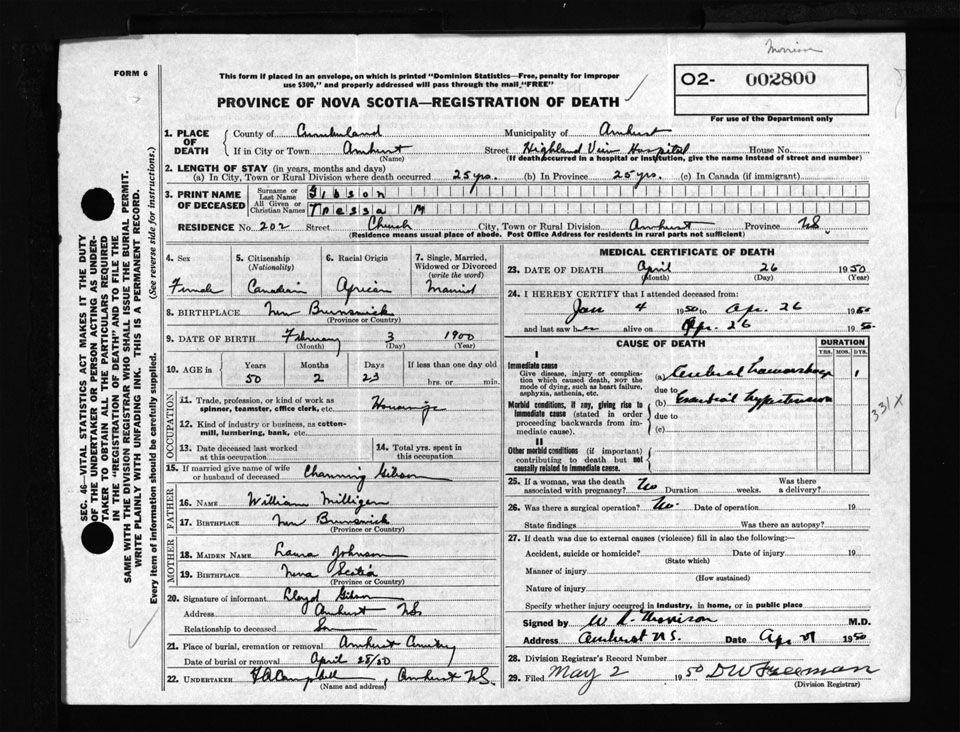 Morrison
FORM 6
This form if placed in an envelope, on which is printed "Dominion Statistics—Free, penalty for improper
use $300," and properly addressed will pass through the mail "FREE"
O2- 002800
PROVINCE OF NOVA SCOTIA—REGISTRATION OF DEATH
For use of the Department only
1. PLACE OF DEATH
County of Cumberland Municipality of Amherst
If in City or Town Amherst Street Highland View Hospital House No.
(Name) (If death occurred in a hospital or institution, give the name instead of street and number)
2. LENGTH OF STAY (in years, months and days)
(a) In City, Town or Rural Division where death occurred 25 yrs. (b) In Province 25 yrs. (c) In Canada (if immigrant)
3. PRINT NAME OF DECEASED
Surname or Last Name Gibson
All Given or Christian Names Tressa M
RESIDENCE No. 202 Street Church City, Town or Rural Division Amherst Province NS
(Residence means usual place of abode. Post Office Address for residents in rural parts not sufficient)
4. Sex 5. Citizenship (Nationality) 6. Racial Origin 7. Single, Married, Widowed or Divorced (write the word)
Female Canadian African Married
8. BIRTHPLACE New Brunswick
(Province or Country)
9. DATE OF BIRTH February 3 1900
(Month) (Day) (Year)
10. AGE in Years Months Days If less than one day old
50 2 23 hrs. or min.
OCCUPATION
11. Trade, profession, or kind of work as
spinner, teamster, office clerk, etc.
12. Kind of industry or business, as cotton-
mill, lumbering, bank, etc.
13. Date deceased last worked at this occupation 14. Total yrs. spent in this occupation
15. If married give name of wife
or husband of deceased Channing Gibson
FATHER
16. NAME William Milligan
17. BIRTHPLACE New Brunswick
(Province or Country)
MOTHER
18. MAIDEN NAME Laura Johnson
19. BIRTHPLACE Nova Scotia
(Province or Country)
20. Signature of informant Lloyd Gibson
Address Amherst NS
Relationship to deceased Son
21. Place of burial, cremation or removal Amherst
Date of burial or removal April 28/50
22. UNDERTAKER F A Campbell, Amherst NS.
(Name and address)
MEDICAL CERTIFICATE OF DEATH
23. DATE OF DEATH April 26 1950
(Month) (Day) (Year)
24. I HEREBY CERTIFY that I attended deceased from:
Jan 4 1950 to Apr. 26 1950
and last saw her alive on Apr. 26 1950
CAUSE OF DEATH DURATION
YRS. MOS. DYS.
I
Immediate cause
Give disease, injury or complica-
tion which caused death, not the
mode of dying, such as heart failure,
asphyxia, asthenia, etc.
(a) Cerebral Haemorrhage 1
due to
Morbid conditions, if any, giving rise to
immediate cause (stated in order
proceeding backwards from im-
mediate cause).
(b) Essential hypertension
due to
(c)
331X
II
Other morbid conditions (if important)
contributing to death but not
causally related to immediate cause.
25. If a woman, was the death
associated with pregnancy? No Duration weeks. Was there a delivery?
26. Was there a surgical operation? No. Date of operation 19
State findings Was there an autopsy?
27. If death was due to external causes (violence) fill in also the following:—
Accident, suicide or homicide? Date of injury 19
(State which)
Manner of injury
(How sustained)
Nature of injury
Specify whether injury occurred in industry, in home, or in public place
Signed by Morrison M.D.
Address Amherst N.S. Date Apr 1950
28. Division Registrar's Record Number
29. Filed May 2 1950 D W Freeman
(Division Registrar)
SEC. 46—VITAL STATISTICS ACT MAKES IT THE DUTY
OF THE UNDERTAKER OR PERSON ACTING AS UNDER-
TAKER TO OBTAIN ALL THE PARTICULARS REQUIRED
IN THE "REGISTRATION OF DEATH" AND TO FILE THE
SAME WITH THE DIVISION REGISTRAR WHO SHALL ISSUE THE BURIAL PERMIT.
WRITE PLAINLY WITH UNFADING INK. THIS IS A PERMANENT RECORD.
Every item of information should be carefully supplied. (See reverse side for instructions.)